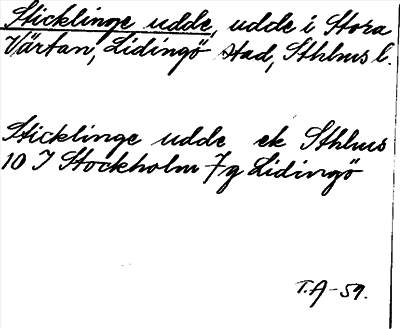 Sticklinge udde, udde i Stora
Värtan, Lidingö stad, Sthlms l.
Sticklinge udde ek Sthlms
10 I Stockholm 7g Lidingö
T.A-59.